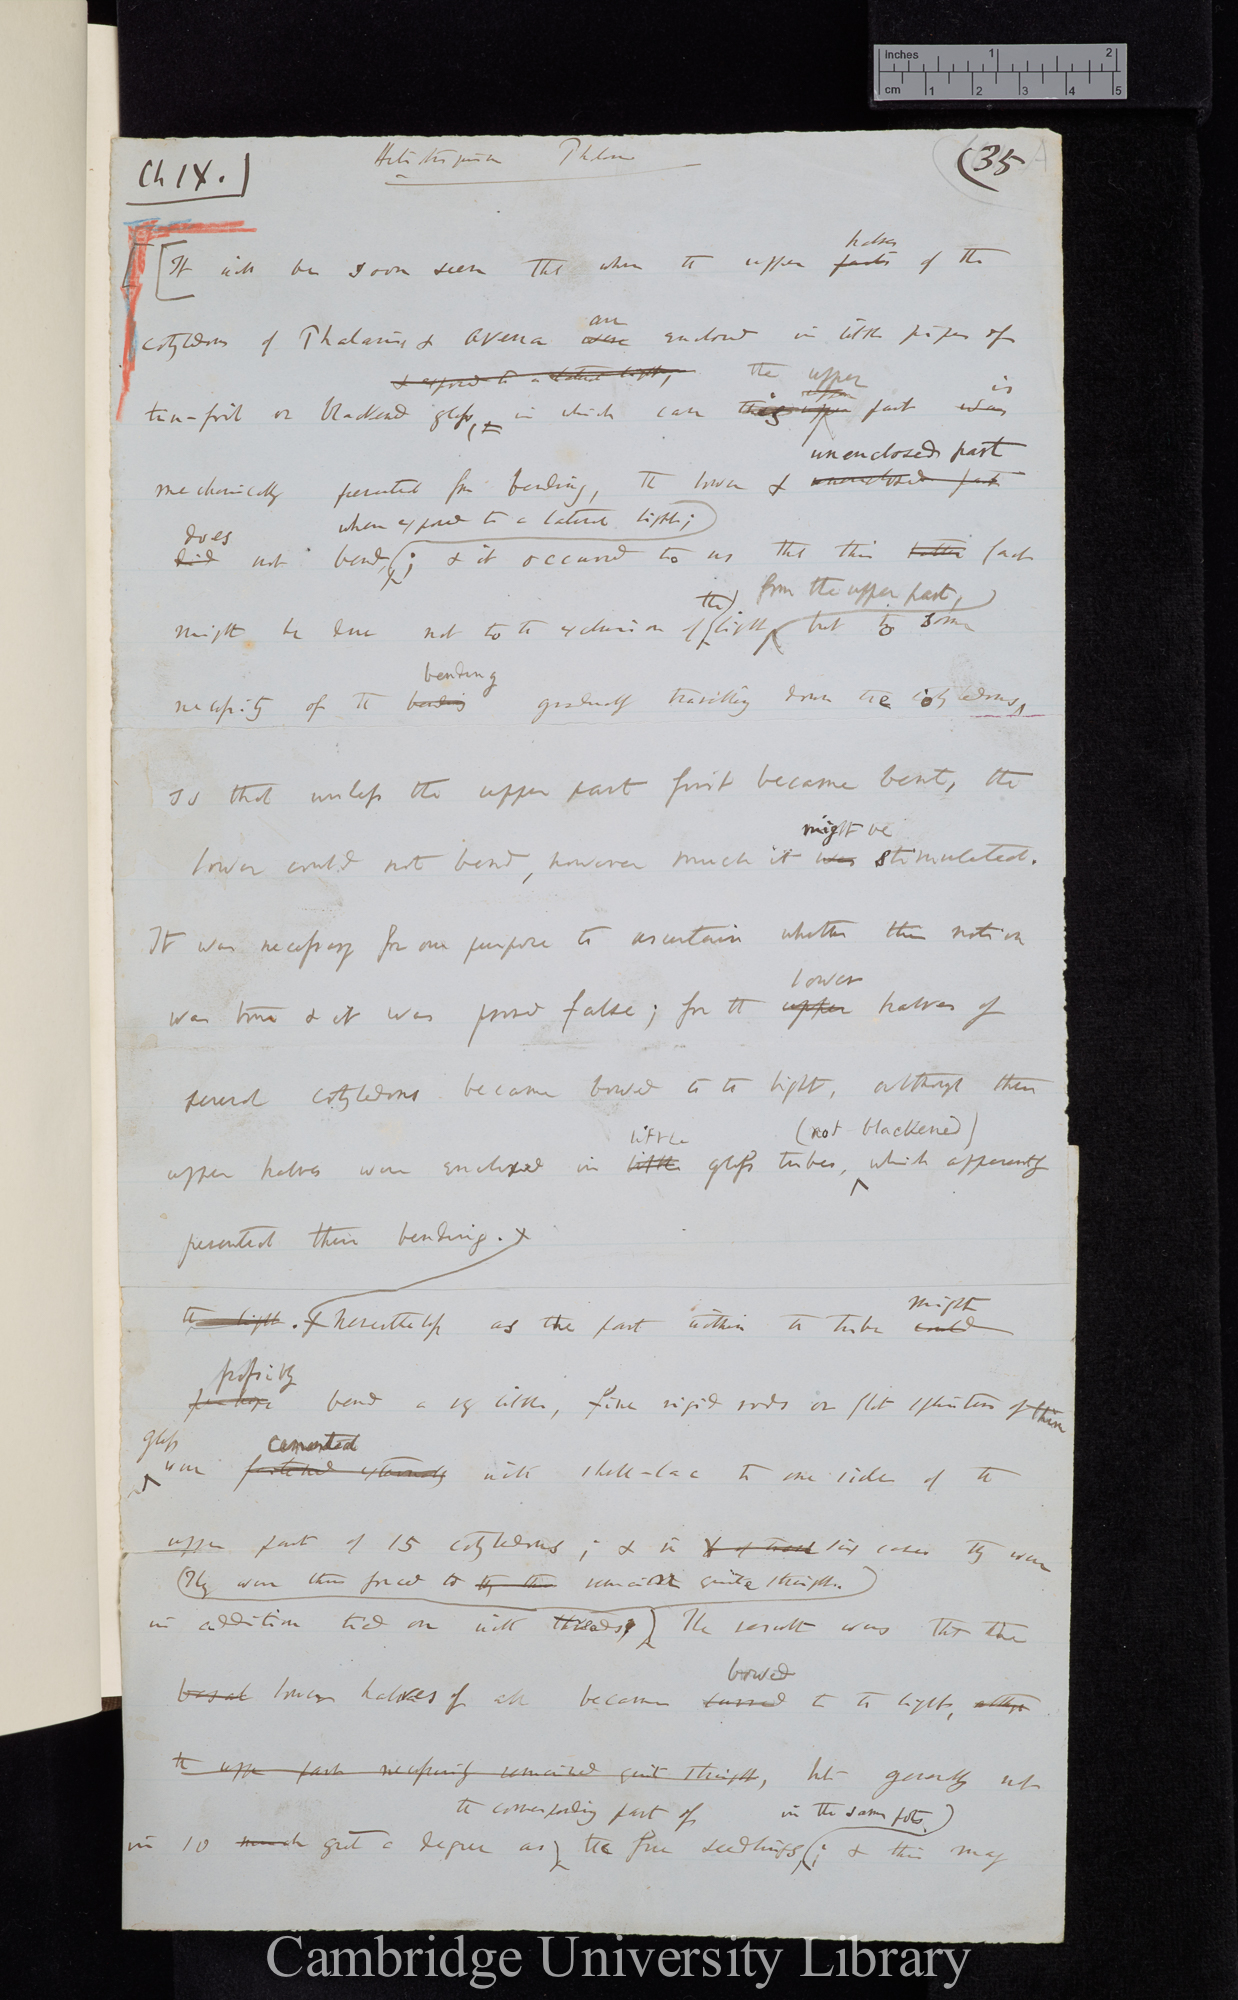 inches 1 2
cm 1 2 3 4 5
Ch IX.] Heliotropism Phalaris (35
halves
[It will be soon seen that when the upper parts of the
are
cotyledons of Phalaris & Avena were enclosed in little pipes of
& exposed to a lateral light, the upper is
tin-foil or blackened glass, in which case this upper part was
unenclosed part
mechanically prevented from bending, the lower & unenclosed part
does when exposed to a lateral light;
did not bend; & it occurred to us that this fact
the from the upper part,
might be due not to the exclusion of light, but to some
bending
necessity of the bending gradually travelling down the cotyledons,
so that unless the upper part first became bent, the
might be
lower could not bend, however much it was stimulated.
It was necessary for our purpose to ascertain whether this notion
lower
was true & it was proved false; for the upper halves of
several cotyledons became bowed to the light, although their
little (not blackened)
upper halves were enclosed in little glass tubes, which apparently
prevented their bending.
might
the light. Nevertheless as the part within the tube could
possibly
perhaps bend a very little, fine rigid rods or flat splinters of thin
glass cemented
were fastened externally with shell-lac to one side of the
upper part of 15 cotyledons; & in six cases they were
(They were thus forced to remain quite straight.)
in addition tied on with threads. The result was that the
bowed
basal lower halves of all became curved to the light, although
the upper part necessarily remained quite straight, but generally not
the corresponding part of in the same pots,)
in so much great a degree as the free seedlings; & this may
Cambridge University Library